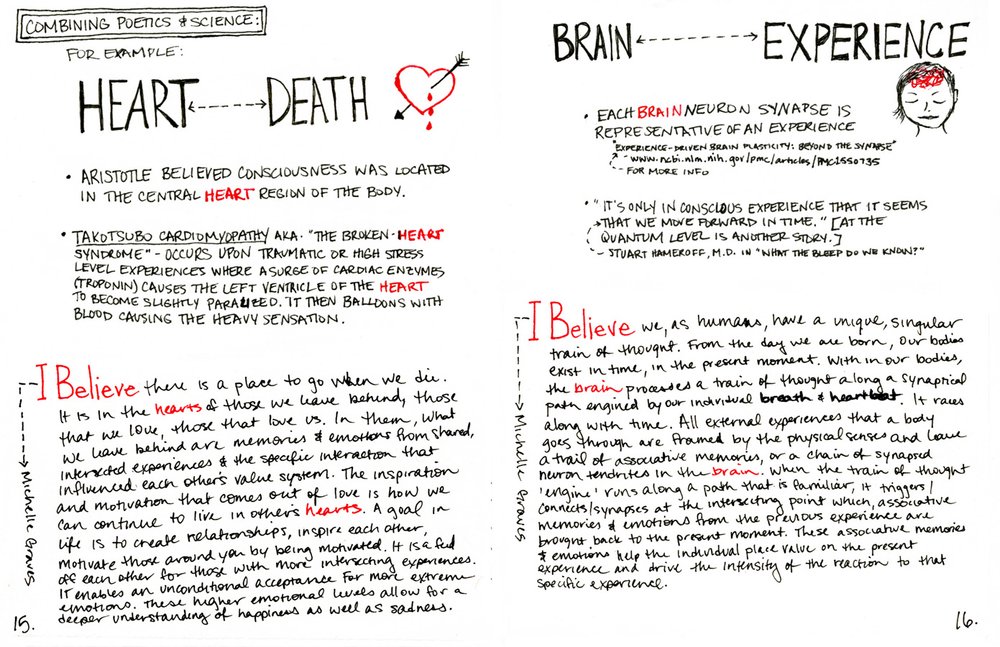 COMBINING POETICS & SCIENCE:
FOR EXAMPLE:
HEART <----> DEATH
• ARISTOTLE BELIEVED CONSCIOUSNESS WAS LOCATED
IN THE CENTRAL HEART REGION OF THE BODY.
• TAKOTSUBO CARDIOMYOPATHY AKA. "THE BROKEN-HEART
SYNDROME" - OCCURS UPON TRAUMATIC OR HIGH STRESS
LEVEL EXPERIENCES WHERE A SURGE OF CARDIAC ENZYMES
(TROPONIN) CAUSES THE LEFT VENTRICLE OF THE HEART
TO BECOME SLIGHTLY PARALIZED. IT THEN BALLOONS WITH
BLOOD CAUSING THE HEAVY SENSATION.
I Believe there is a place to go when we die.
It is in the hearts of those we leave behind, those
that we love, those that love us. In them, what
we leave behind are memories & emotions from shared,
intersected experiences & the specific interaction that
influenced each other's value system. The inspiration
and motivation that comes out of love is how we
can continue to live in other's hearts. A goal in
life is to create relationships, inspire each other,
motivate those around you by being motivated. It is a fed
off each other for those with more intersecting experiences.
It enables an unconditional acceptance for more extreme
emotions. These higher emotional levels allow for a
deeper understanding of happiness as well as sadness.
Michelle Graves
15.
BRAIN <----> EXPERIENCE
• EACH BRAIN NEURON SYNAPSE IS
REPRESENTATIVE OF AN EXPERIENCE
"EXPERIENCE-DRIVEN BRAIN PLASTICITY: BEYOND THE SYNAPSE"
- www.ncbi.nlm.nih.gov/pmc/articles/PMC1550735
- FOR MORE INFO
• "IT'S ONLY IN CONSCIOUS EXPERIENCE THAT IT SEEMS
THAT WE MOVE FORWARD IN TIME." [AT THE
QUANTUM LEVEL IS ANOTHER STORY.]
- STUART HAMEROFF, M.D. IN "WHAT THE BLEEP DO WE KNOW?"
I Believe we, as humans, have a unique, singular
train of thought. From the day we are born, our bodies
exist in time, in the present moment. With in our bodies,
the brain processes a train of thought along a synaptical
path engined by our individual breath & heartbeat. It races
along with time. All external experiences that a body
goes through are framed by the physical senses and leave
a trail of associative memories, or a chain of synapsed
neuron tendrites in the brain. When the train of thought
'engine' runs along a path that is familiar, it triggers/
connects/synapses at the intersecting point which, associative
memories & emotions from the previous experience are
brought back to the present moment. These associative memories
& emotions help the individual place value on the present
experience and drive the intensity of the reaction to that
specific experience.
Michelle Graves
16.